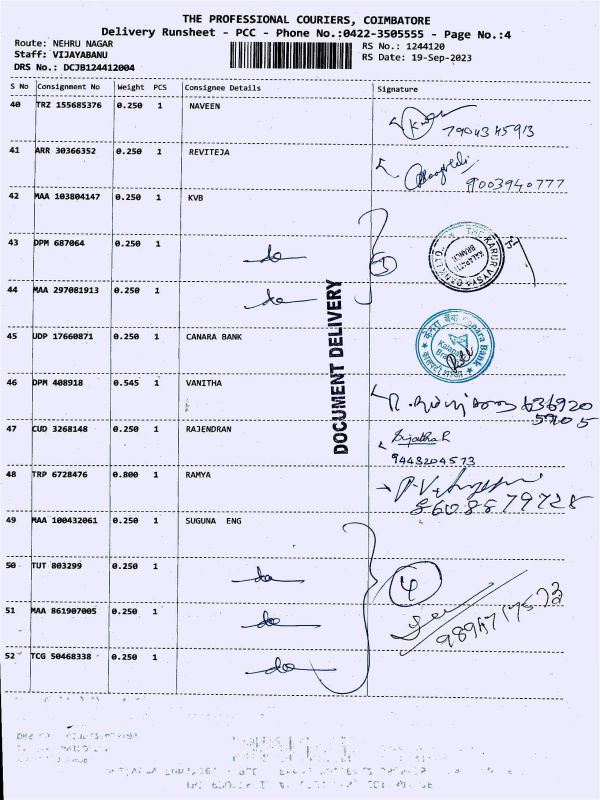 THE PROFESSIONAL COURIERS, COIMBATORE
Delivery Runsheet - PCC - Phone No.:0422-3505555 - Page No.:4
Route: NEHRU NAGAR
RS No.: 1244120
Staff: VIJAYABANU
RS Date: 19-Sep-2023
DRS No.: DCJB124412004
S No Consignment No Weight PCS Consignee Details Signature
40 TRZ 155685376 0.250 1 NAVEEN
7904345913
41 ARR 30366352 0.250 1 REVITEJA
9003940777
42 MAA 103804147 0.250 1 KVB
43 DPM 687064 0.250 1 do
3
THE KARUR VYSYA BANK LTD.
KALAPATTI
BRANCH
44 MAA 297081913 0.250 1 do
DOCUMENT DELIVERY
45 UDP 17660871 0.250 1 CANARA BANK
केनरा बैंक Canara Bank
46 DPM 408918 0.545 1 VANITHA
636920
5705
47 CUD 3268148 0.250 1 RAJENDRAN
Sujatha R
9443204573
48 TRP 6728476 0.800 1 RAMYA
8608879728
49 MAA 100432061 0.250 1 SUGUNA ENG
50 TUT 803299 0.250 1 do
4
51 MAA 861907005 0.250 1 do
52 TCG 50468338 0.250 1 do